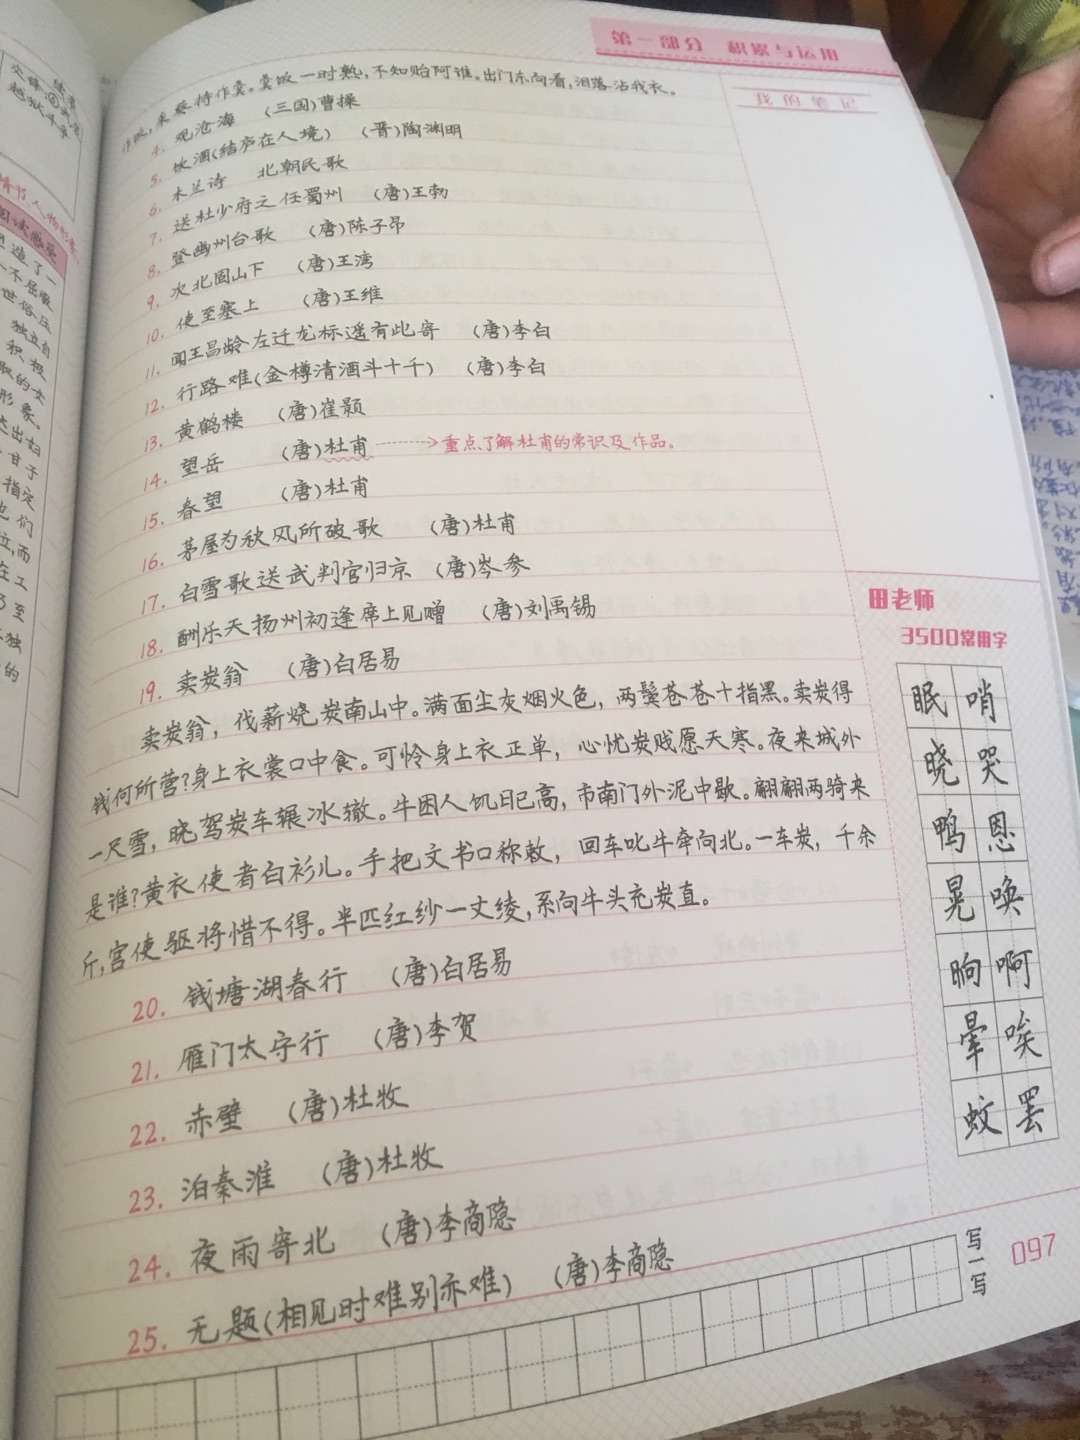 第一部分 积累与运用
我的笔记
作饭,采葵持作羹。羹饭一时熟,不知贻阿谁。出门东向看,泪落沾我衣。
4. 观沧海 (三国)曹操
5. 饮酒(结庐在人境) (晋)陶渊明
6. 木兰诗 北朝民歌
7. 送杜少府之任蜀州 (唐)王勃
8. 登幽州台歌 (唐)陈子昂
9. 次北固山下 (唐)王湾
10. 使至塞上 (唐)王维
11. 闻王昌龄左迁龙标遥有此寄 (唐)李白
12. 行路难(金樽清酒斗十千) (唐)李白
13. 黄鹤楼 (唐)崔颢
14. 望岳 (唐)杜甫 重点了解杜甫的常识及作品。
15. 春望 (唐)杜甫
16. 茅屋为秋风所破歌 (唐)杜甫
17. 白雪歌送武判官归京 (唐)岑参
18. 酬乐天扬州初逢席上见赠 (唐)刘禹锡
19. 卖炭翁 (唐)白居易
卖炭翁,伐薪烧炭南山中。满面尘灰烟火色,两鬓苍苍十指黑。卖炭得
钱何所营?身上衣裳口中食。可怜身上衣正单,心忧炭贱愿天寒。夜来城外
一尺雪,晓驾炭车辗冰辙。牛困人饥日已高,市南门外泥中歇。翩翩两骑来
是谁?黄衣使者白衫儿。手把文书口称敕,回车叱牛牵向北。一车炭,千余
斤,宫使驱将惜不得。半匹红纱一丈绫,系向牛头充炭直。
20. 钱塘湖春行 (唐)白居易
21. 雁门太守行 (唐)李贺
22. 赤壁 (唐)杜牧
23. 泊秦淮 (唐)杜牧
24. 夜雨寄北 (唐)李商隐
25. 无题(相见时难别亦难) (唐)李商隐
田老师
3500常用字
眠 哨
晓 哭
鸭 恩
晃 唤
晌 啊
晕 唉
蚊 罢
写一写
097